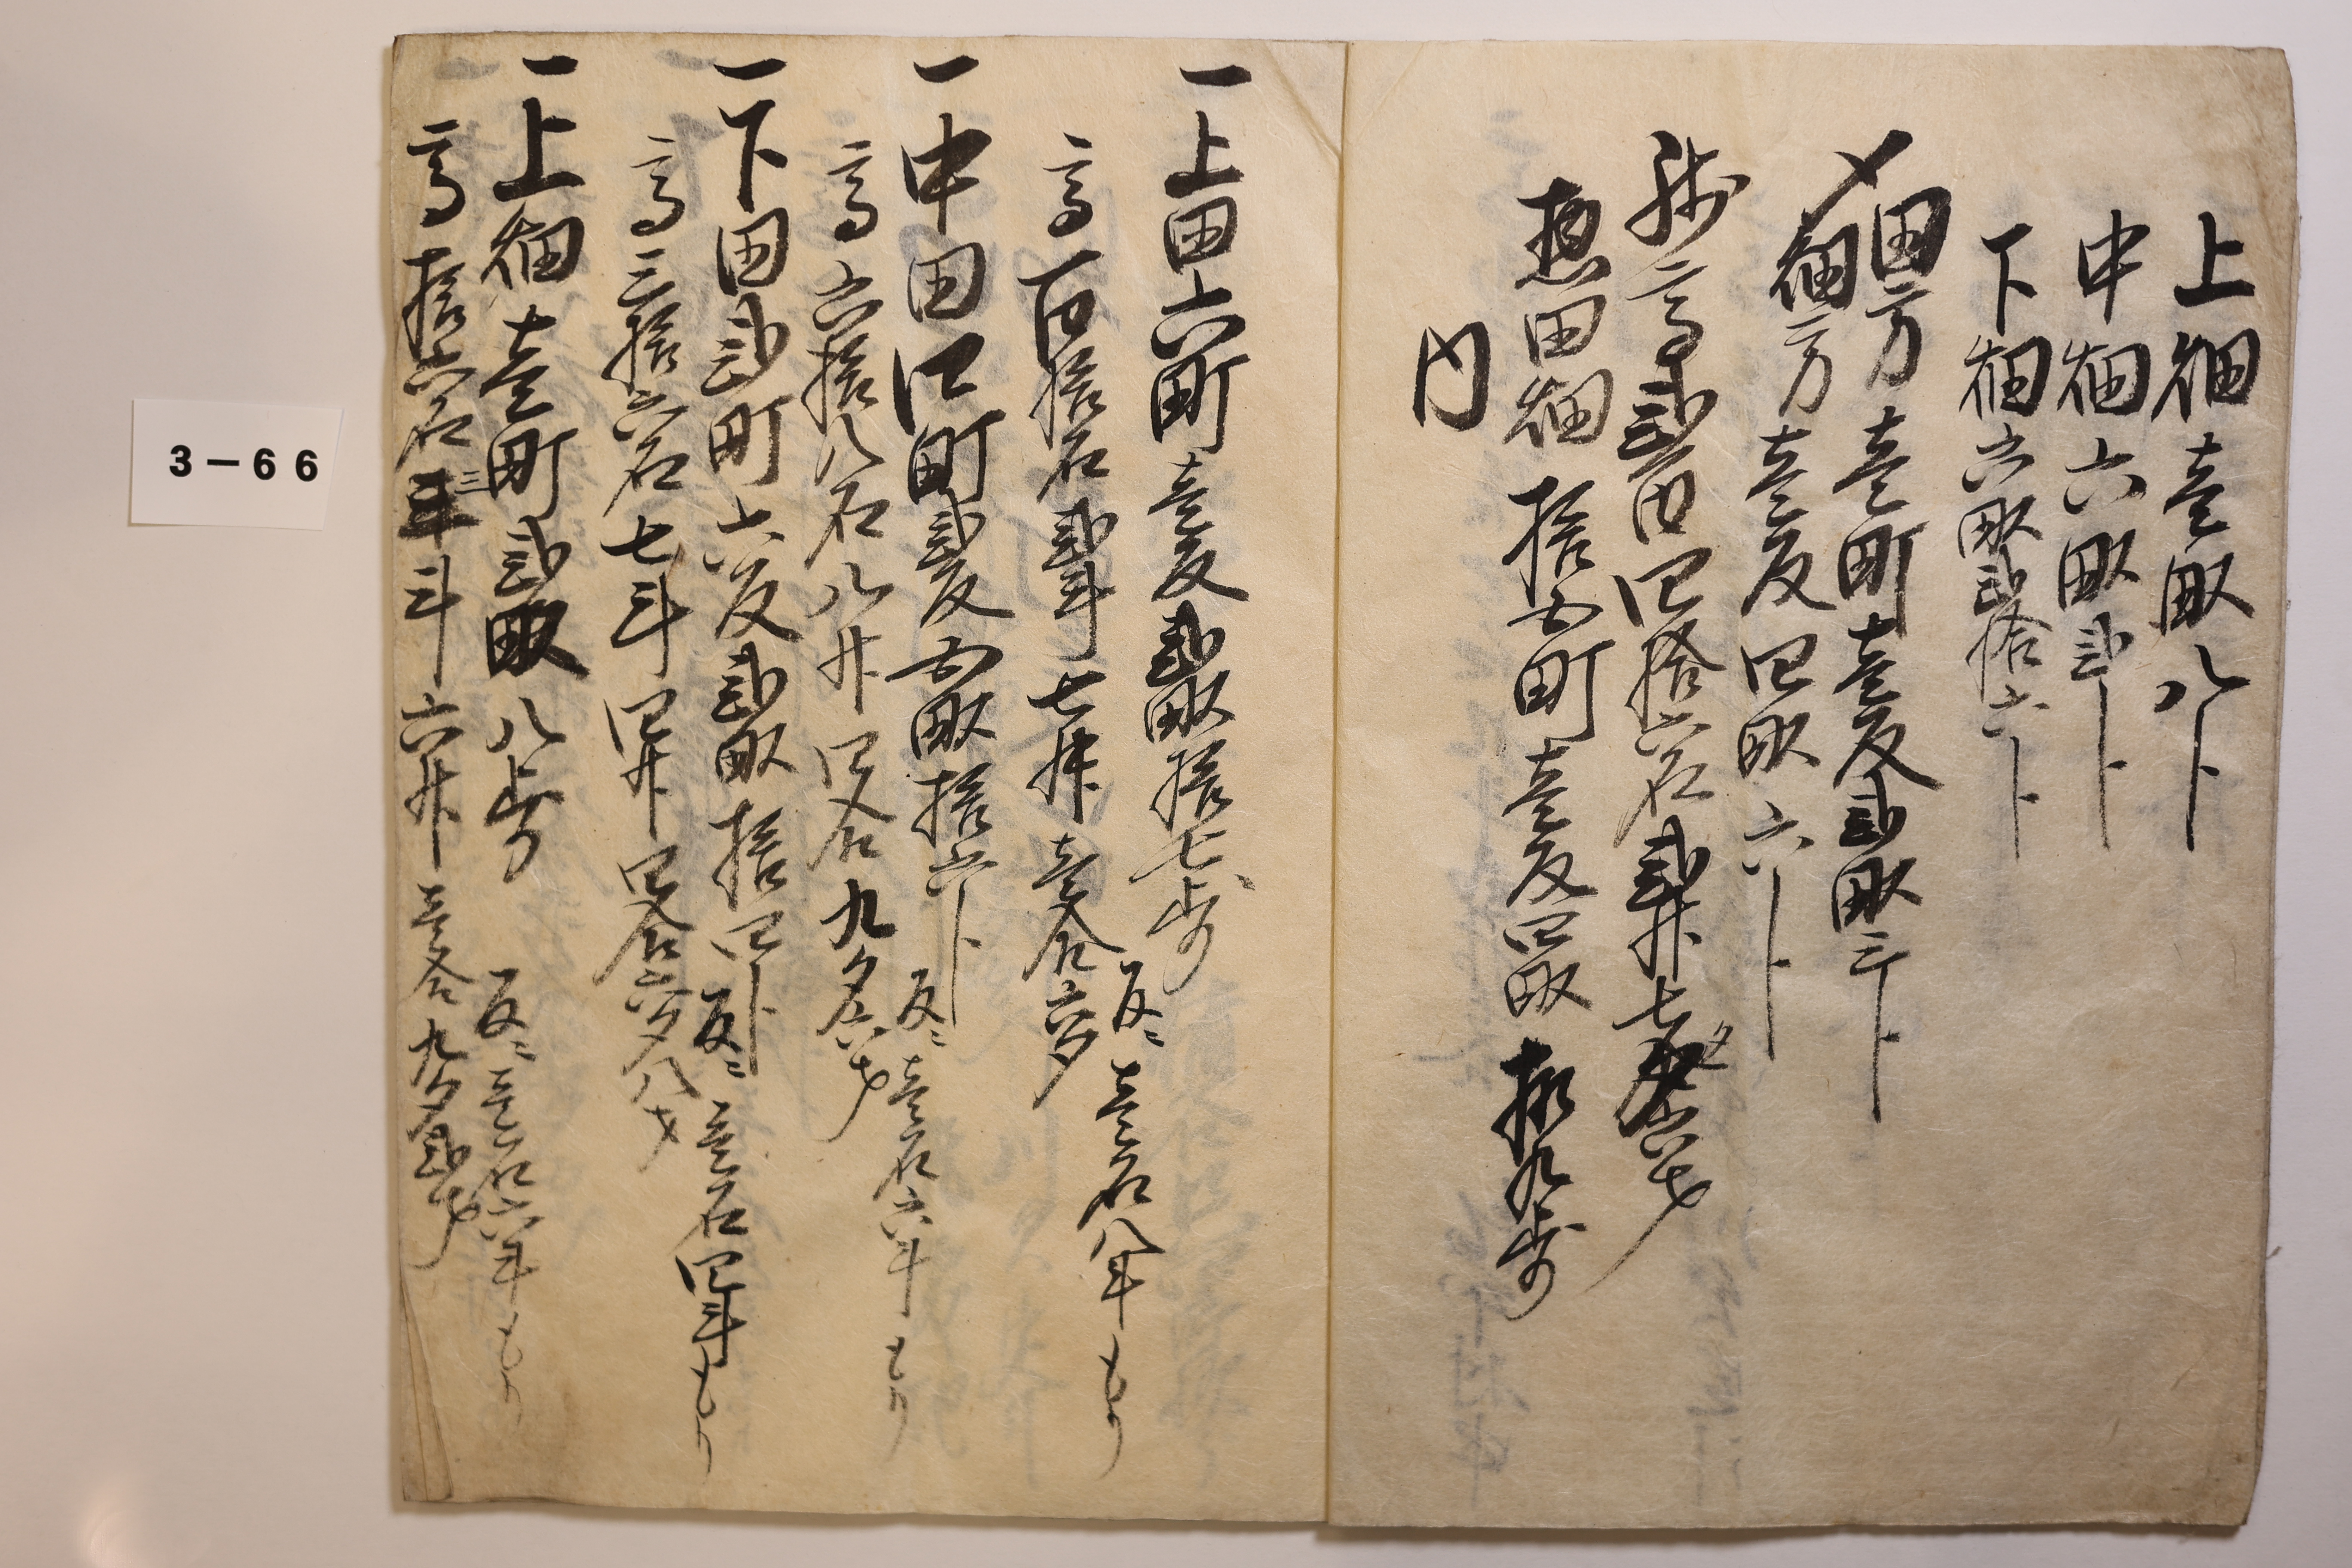 上畑壱畝八卜
中畑六畝弐卜
下畑六畝弐拾六卜
〆田方壱町壱反弐畝三卜
畑方壱反四畝六卜
残高弐百四拾六石弐升七夕六才
惣田畑拾五町壱反四畝拾九歩
内
一上田六町壱反弐畝拾七歩 反ニ壱石八斗もり
高百拾石弐斗七升壱合六夕
一中田四町弐反五畝拾六卜 反ニ壱石六斗もり
高六拾八石八升四合九夕六才
一下田弐町六反弐畝拾四卜 反ニ壱石四斗もり
高三拾六石七斗四升四合六夕八才
一上畑壱町弐畝八歩 反ニ壱石六斗もり
高拾六石三斗六升壱合九夕弐才
3－66